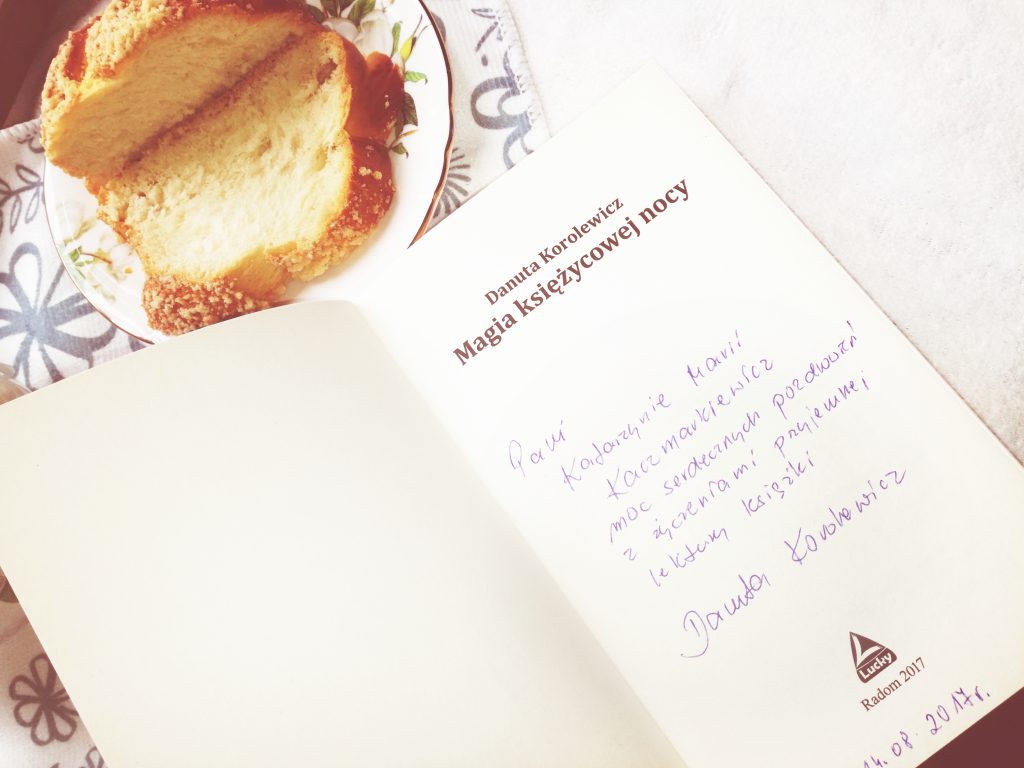 Danuta Korolewicz
Magia księżycowej nocy
Pani
Katarzynie Marii
Kaczmarkiewicz
moc serdecznych pozdrowień
z życzeniami przyjemnej
lektury książki
Danuta Korolewicz
Lucky
Radom 2017
14.08.2017r.